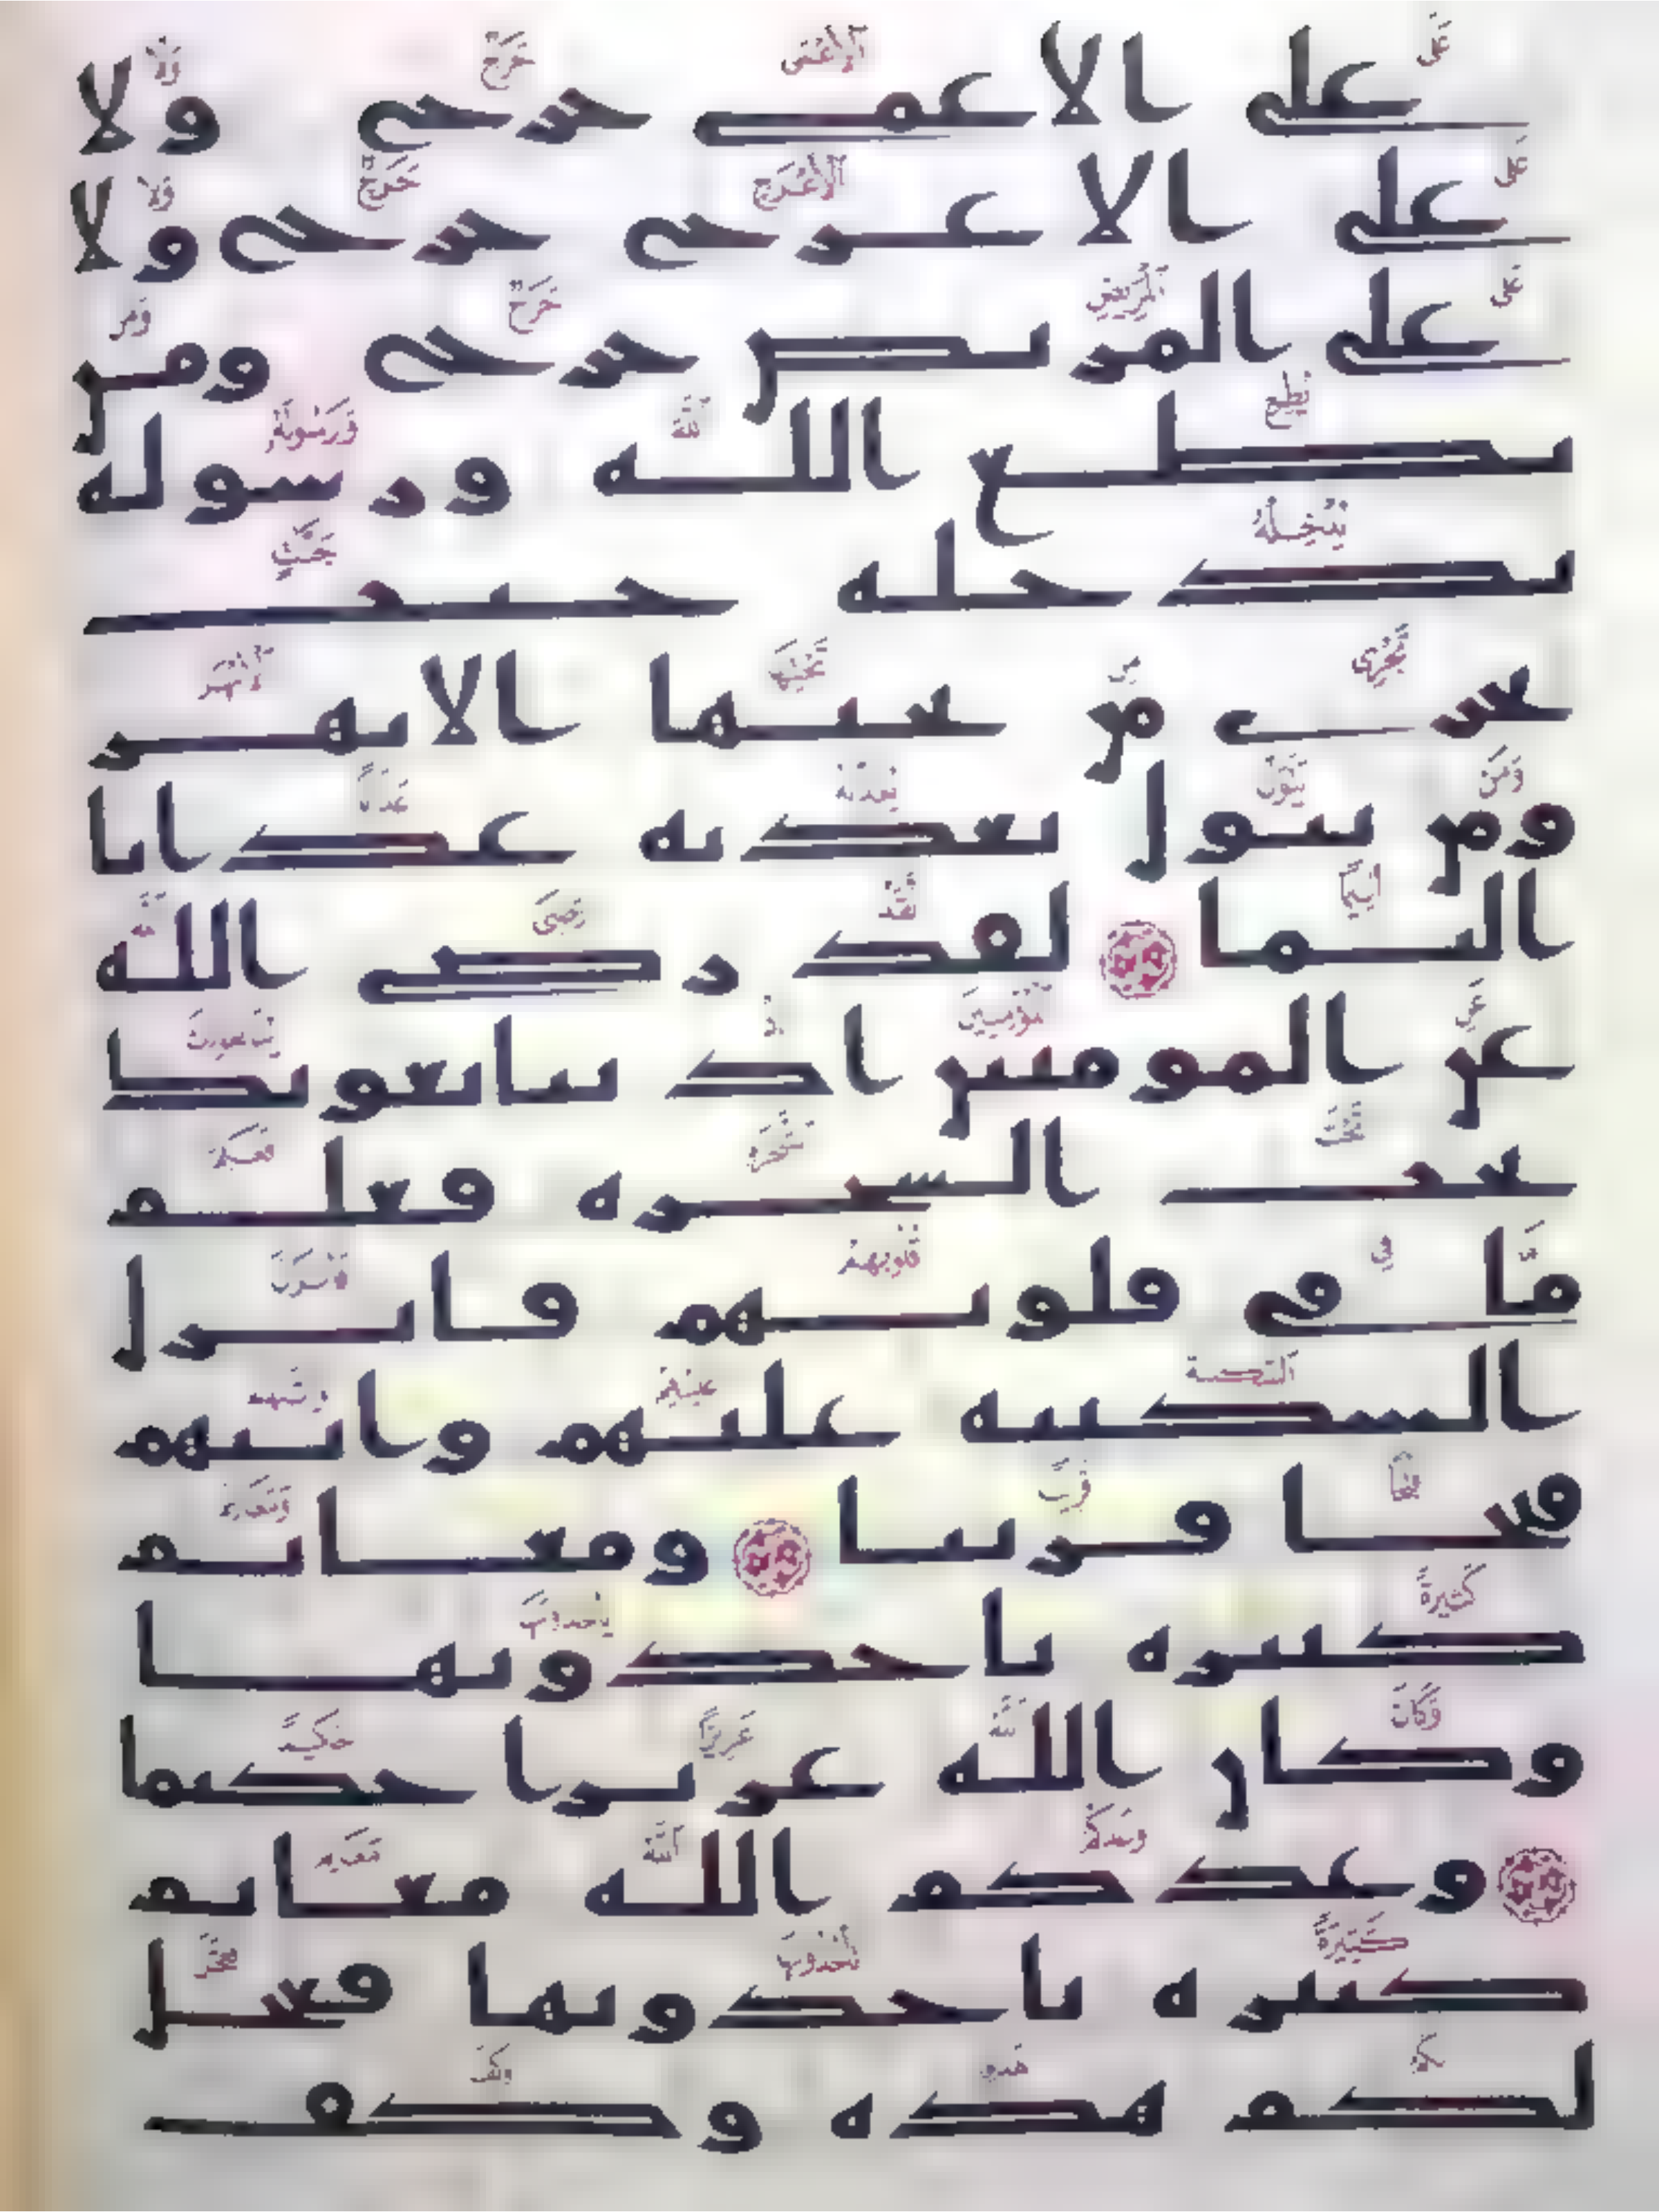 على الاعمى حرج ولا
على الاعرج حرج ولا
على المريض حرج ومن
يطع الله ورسوله
يدخله جنت
تجري من تحتها الانهر
ومن يتول يعذبه عذابا
اليما لقد رضي الله
عن المومنين اذ يبايعونك
تحت الشجرة فعلم
ما في قلوبهم فانزل
السكينة عليهم واثبهم
فتحا قريبا ومغانم
كثيرة ياخذونها
وكان الله عزيزا حكيما
وعدكم الله مغانم
كثيرة تاخذونها فعجل
لكم هذه وكف